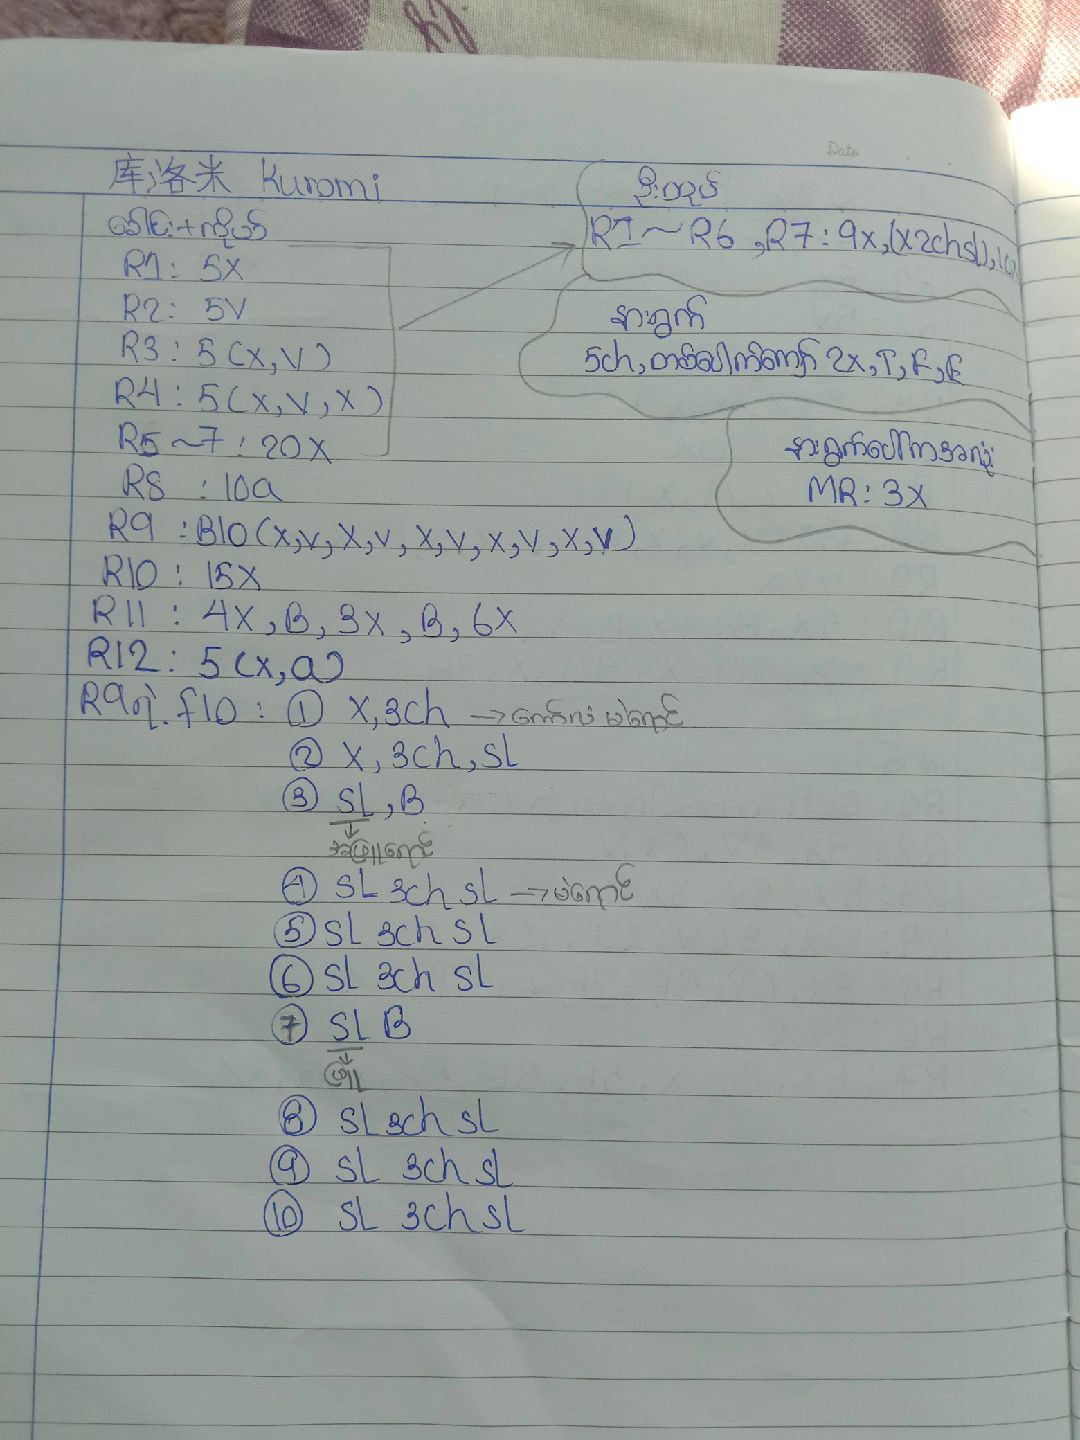 Date
库洛米 Kuromi
ခေါင်း+ကိုယ်
R1: 5X
R2: 5V
R3: 5(X,V)
R4: 5(X,V,X)
R5~7: 20X
R8: 10a
R9: B10(X,V,X,V,X,V,X,V,X,V)
R10: 15X
R11: 4X,B,3X,B,6X
R12: 5(X,a)
R9ရဲ့ f10: ① X,3ch → ကော်လံ မဲရောင်
② X,3ch,sl
③ sl,B
အဖြူရောင်
④ sl 3ch sl → မဲရောင်
⑤ sl 3ch sl
⑥ sl 3ch sl
⑦ sl B
ဖြူ
⑧ sl 3ch sl
⑨ sl 3ch sl
⑩ sl 3ch sl
ဦးထုပ်
R1~R6, R7: 9x,(x2chsl),10x
နားရွက်
5ch, တစ်ပေါက်ကျော် 2x,T,F,E
နားရွက်ပေါ်ကအလုံး
MR: 3X